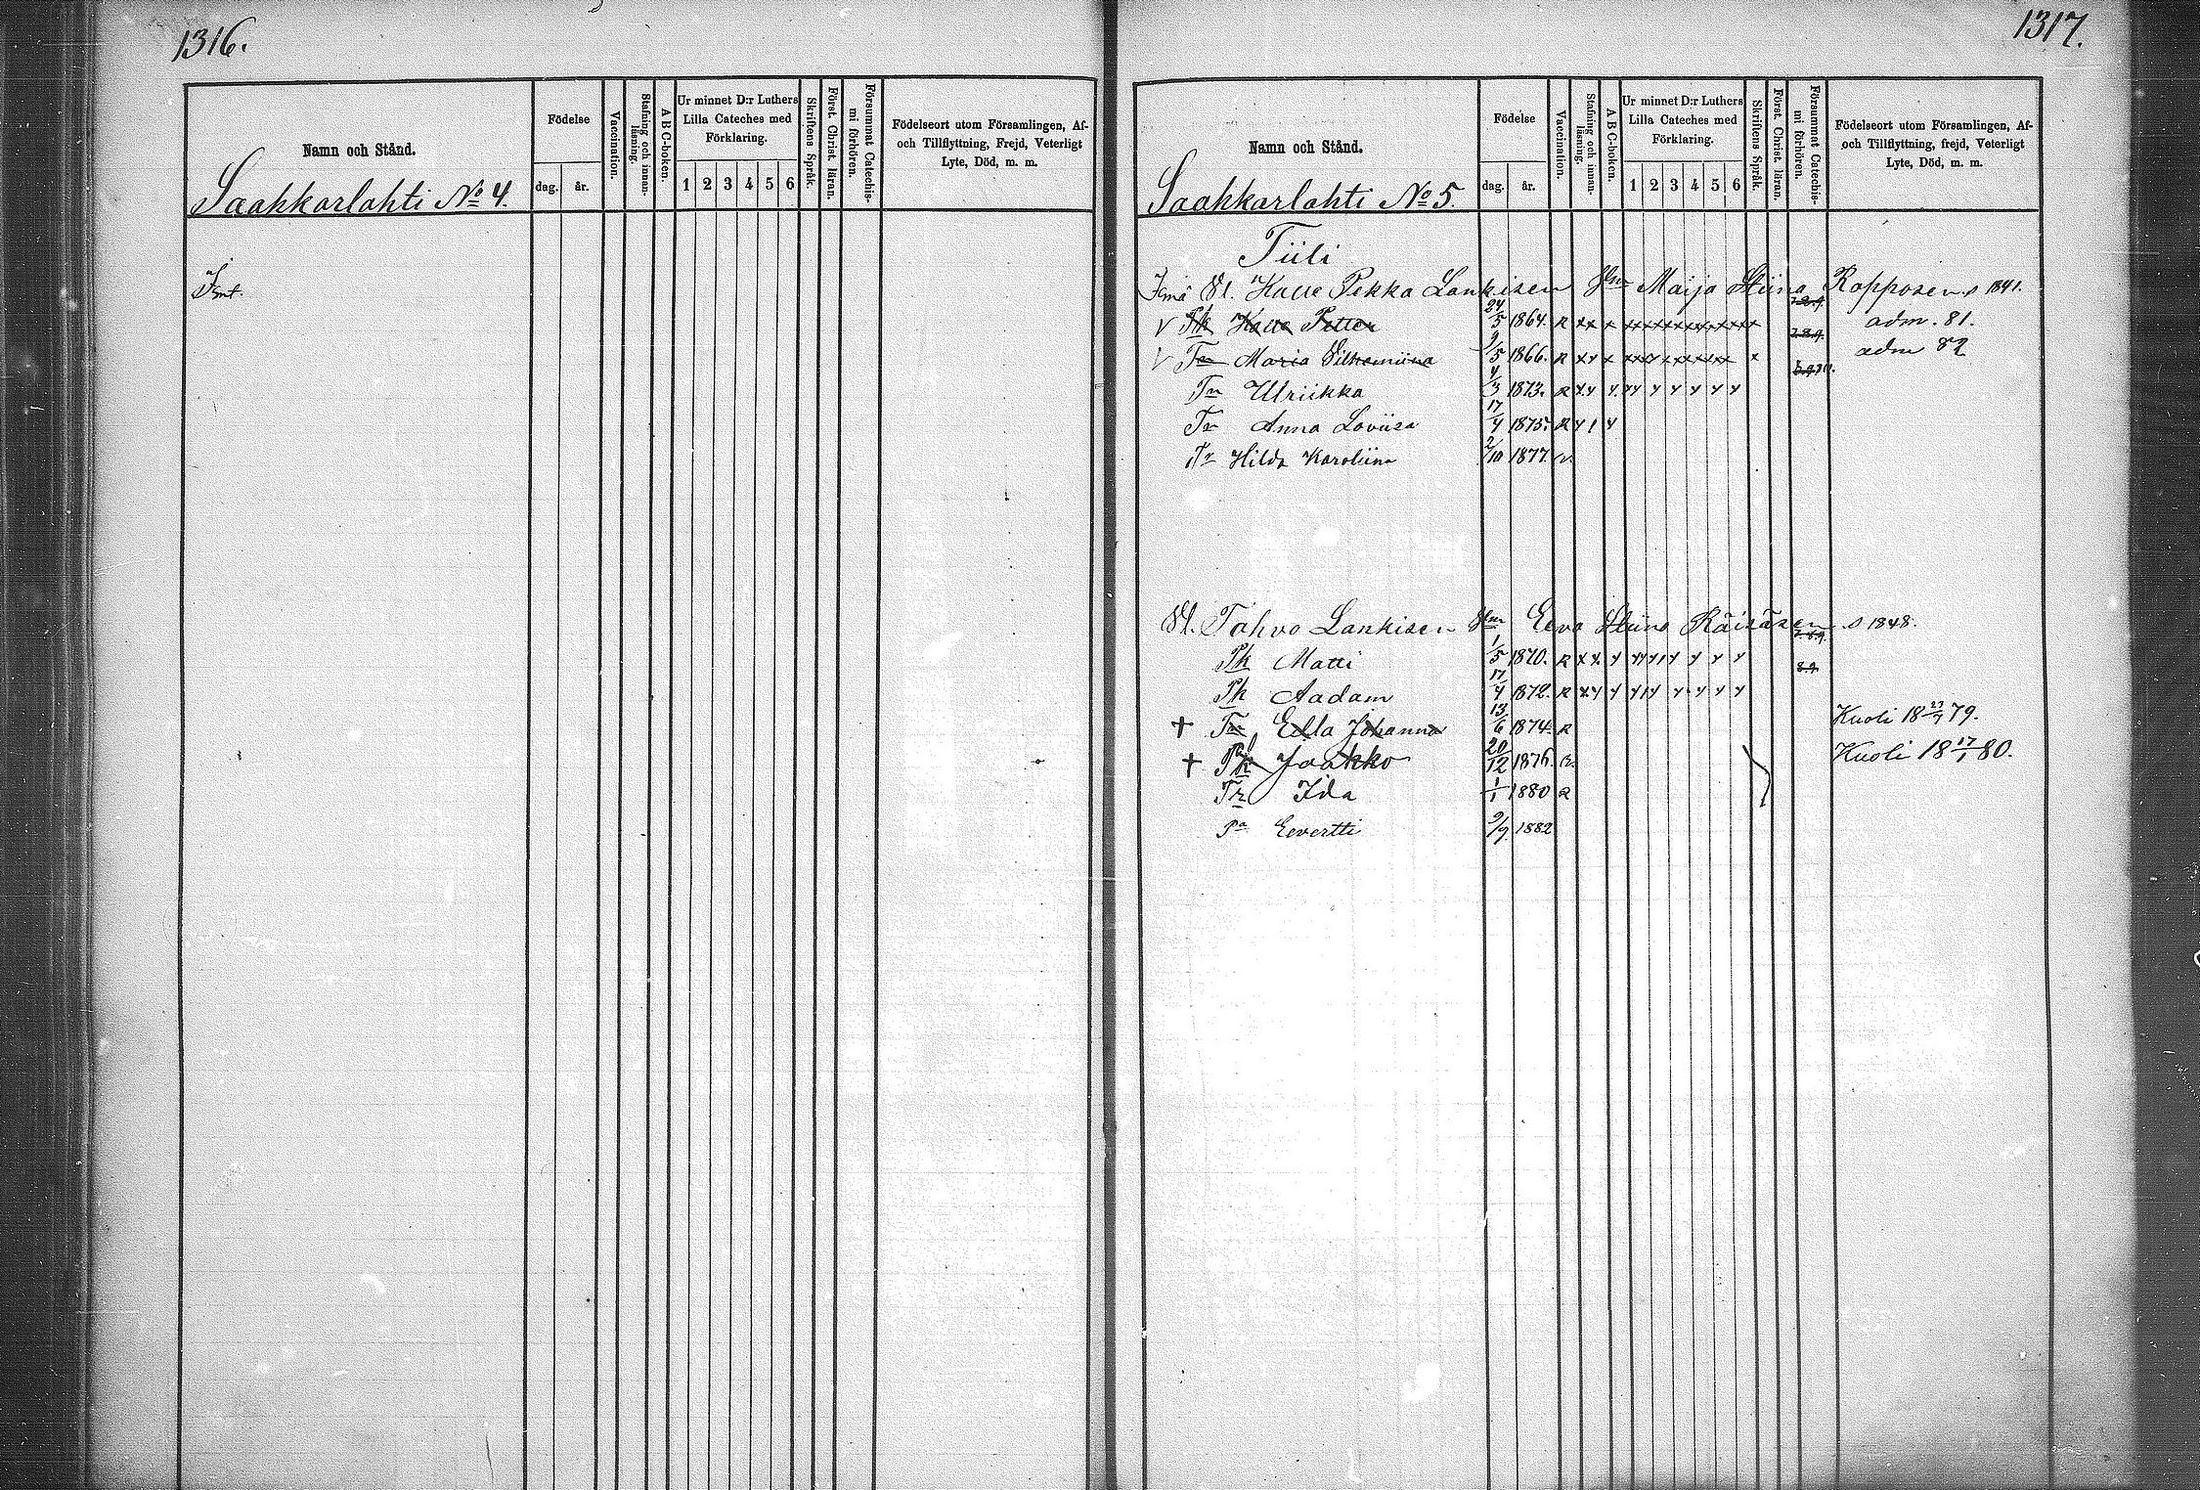 1316.
Namn och Stånd.
Födelse
dag. år.
Vaccination.
Stafning och innan-läsning.
A B C-boken.
Ur minnet D:r Luthers
Lilla Cateches med
Förklaring.
1 2 3 4 5 6
Skriftens Språk.
Först. Christ. läran.
Försummat Catechis-mi förhören.
Födelseort utom Församlingen, Af-
och Tillflyttning, Frejd, Veterligt
Lyte, Död, m. m.
Saahkarlahti No 4.
1317.
Namn och Stånd.
Födelse
dag. år.
Vaccination.
Stafning och innan-läsning.
A B C-boken.
Ur minnet D:r Luthers
Lilla Cateches med
Förklaring.
1 2 3 4 5 6
Skriftens Språk.
Först. Christ läran.
Försummat Catechis-mi förhören.
Födelseort utom Församlingen, Af-
och Tillflyttning, frejd, Veterligt
Lyte, Död, m. m.
Saahkarlahti No 5.
Tiili
Vl. Kalle Pekka Lankisen Maija Stiina Ropposen s 1841.
V Pk Kalle Petter 24/5 1864. R x x x x x x x x x x 7.8.9. adm. 81.
V Tr Maria Vilhemiina 9/5 1866. R x x x x x x x x x x 7.8.9. adm 82
Tr Ulriikka 4/3 1873. R
Tr Anna Loviisa 17/4 1875. R
Tr Hilda Karoliina 2/10 1877. R
Vl. Tahvo Lankisen Eeva Stiina Räisäsen s 1848.
Pk Matti 1/5 1870. R 7.8.9.
Pk Aadam 17/4 1872. R 8.9.
† Tr Ella Johanna 13/6 1874. R Kuoli 18 23/7 79.
† Pk Jaakko 20/12 1876. R. Kuoli 18 17/1 80.
Tr Ida 1/1 1880 R
Pa Eevertti 9/9 1882